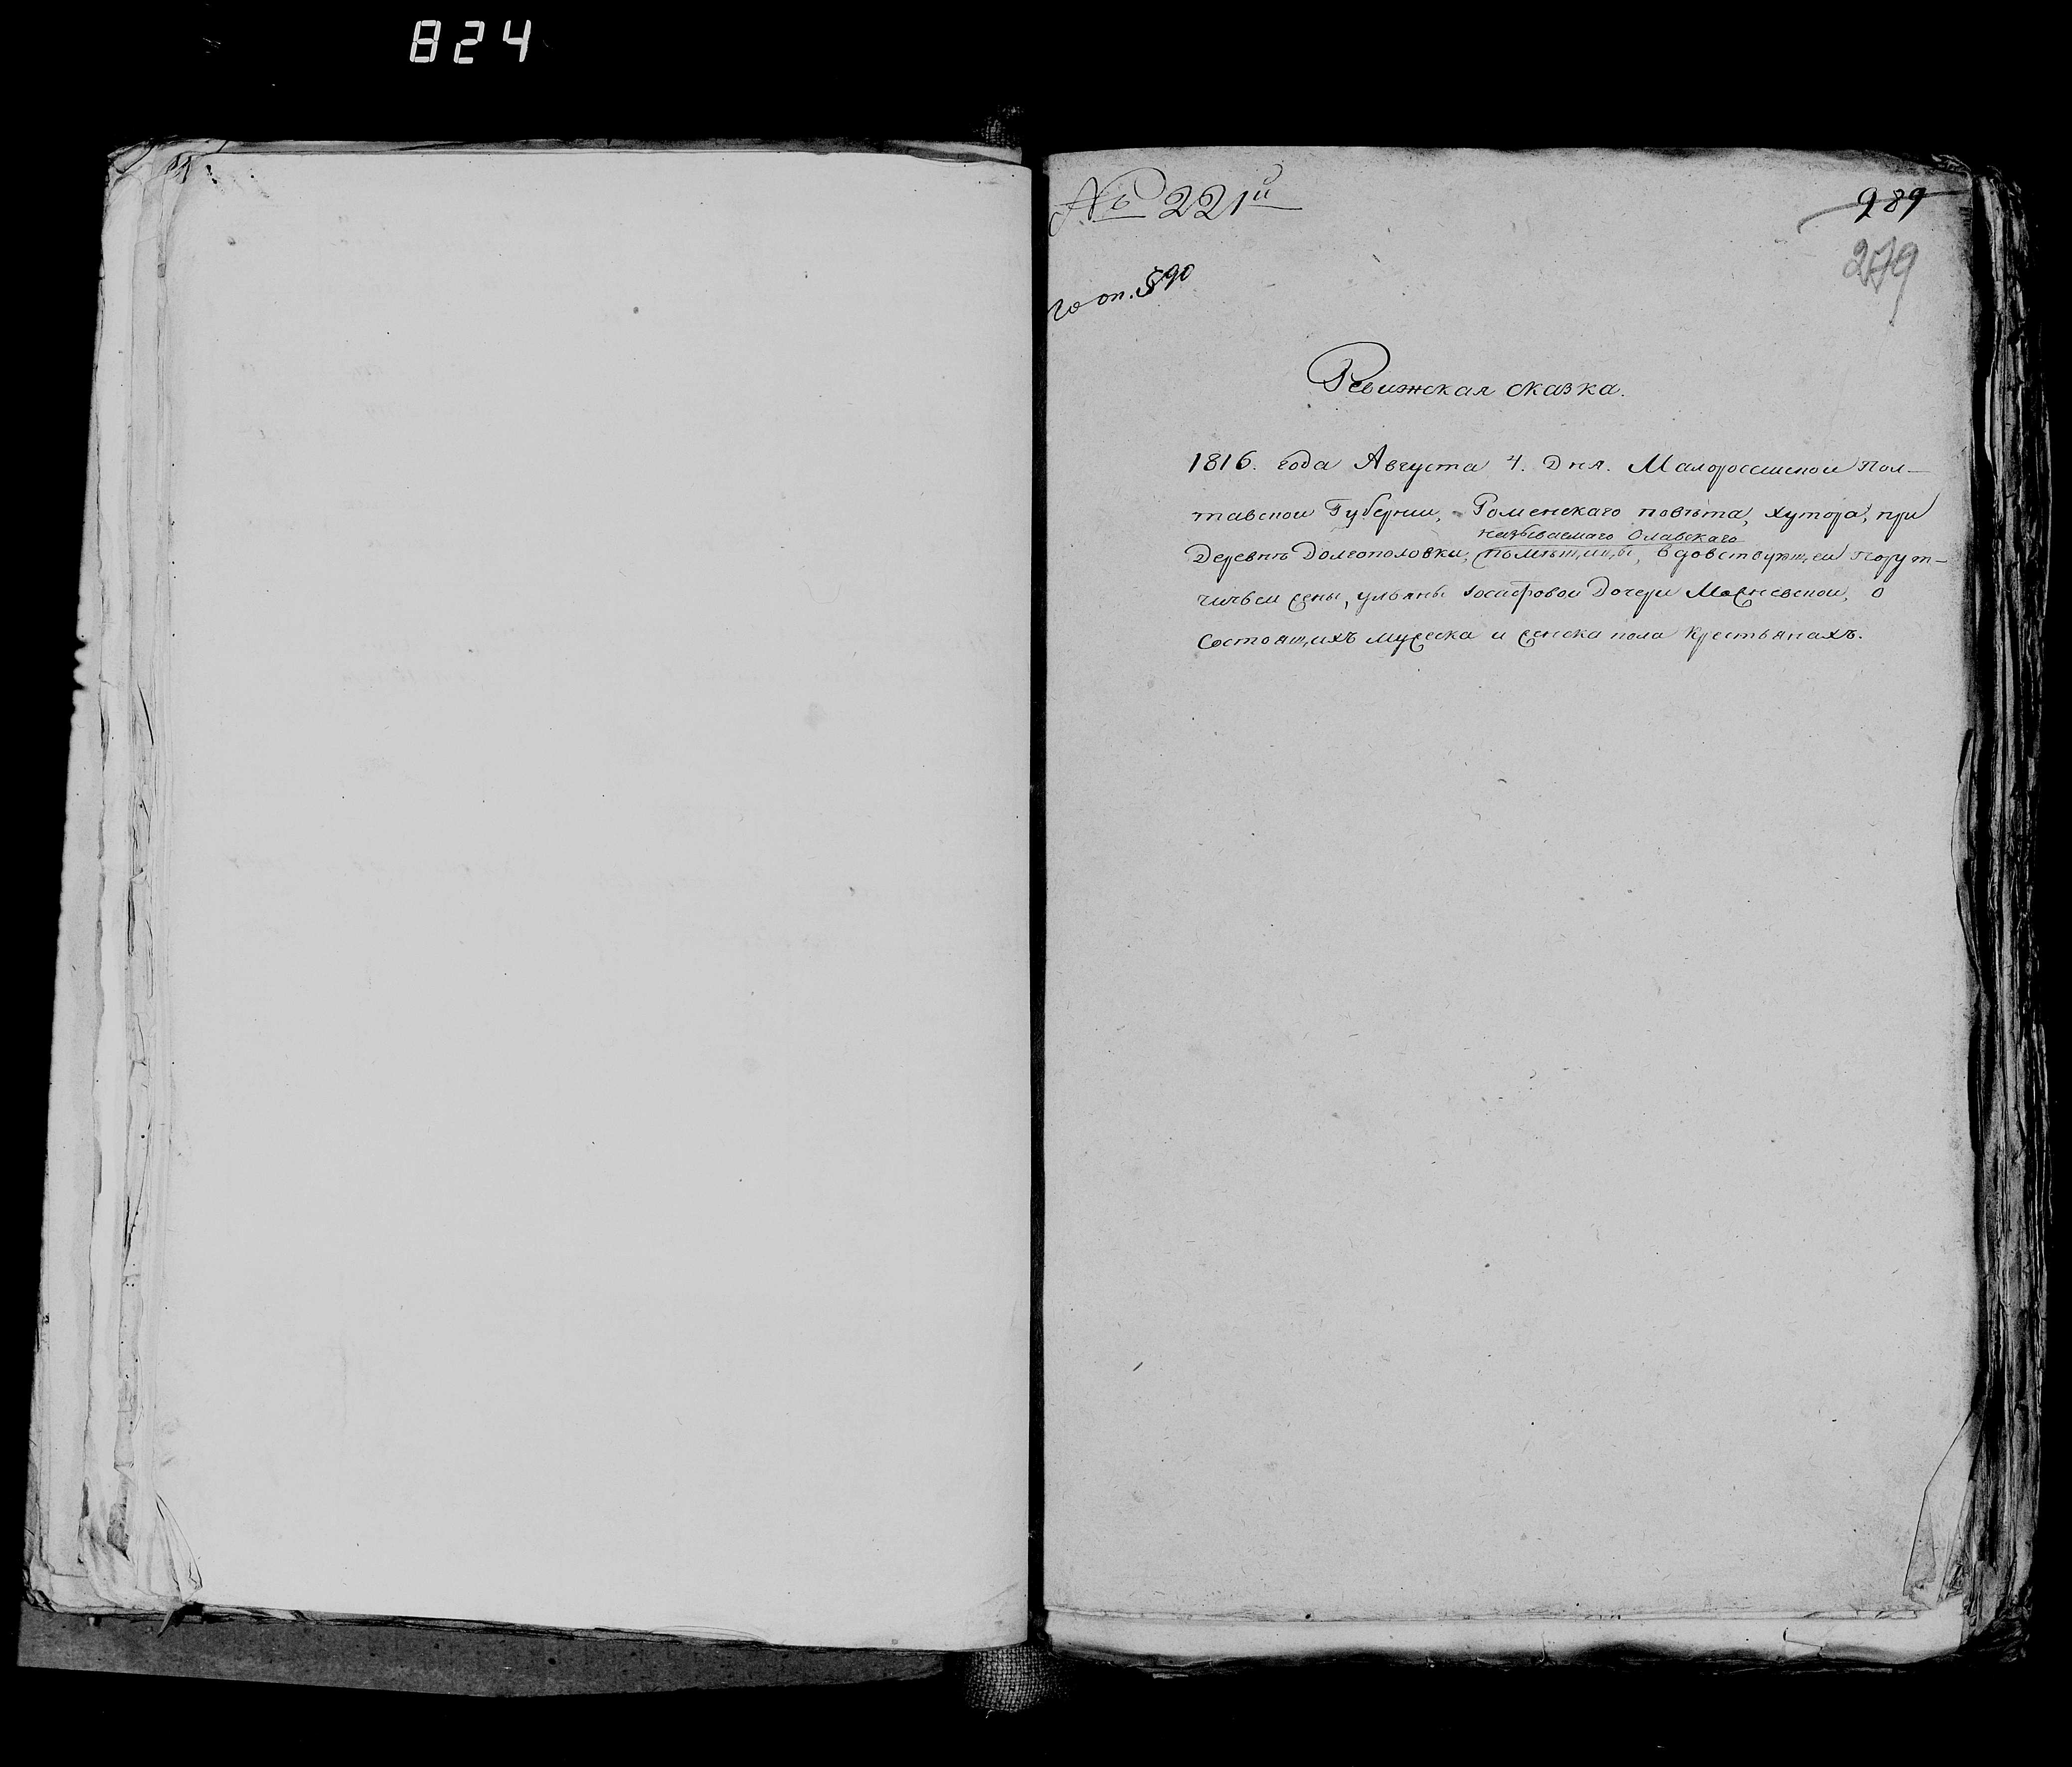 824
№ 221й
989
279
по оп. 590
Ревижская сказка.
1816. года Августа 4. Дня. Малороссийской Пол-
тавской Губернии, Роменскаго повѣта, хутора, при
называемаго Олавскаго
Деревнѣ Долгополовки, помѣщицы, вдовствующей Порут-
чичьей жены, ульяны Иосифовой Дочери Маржевской, о
Состоящихъ мужеска и женска пола Крестьянахъ.